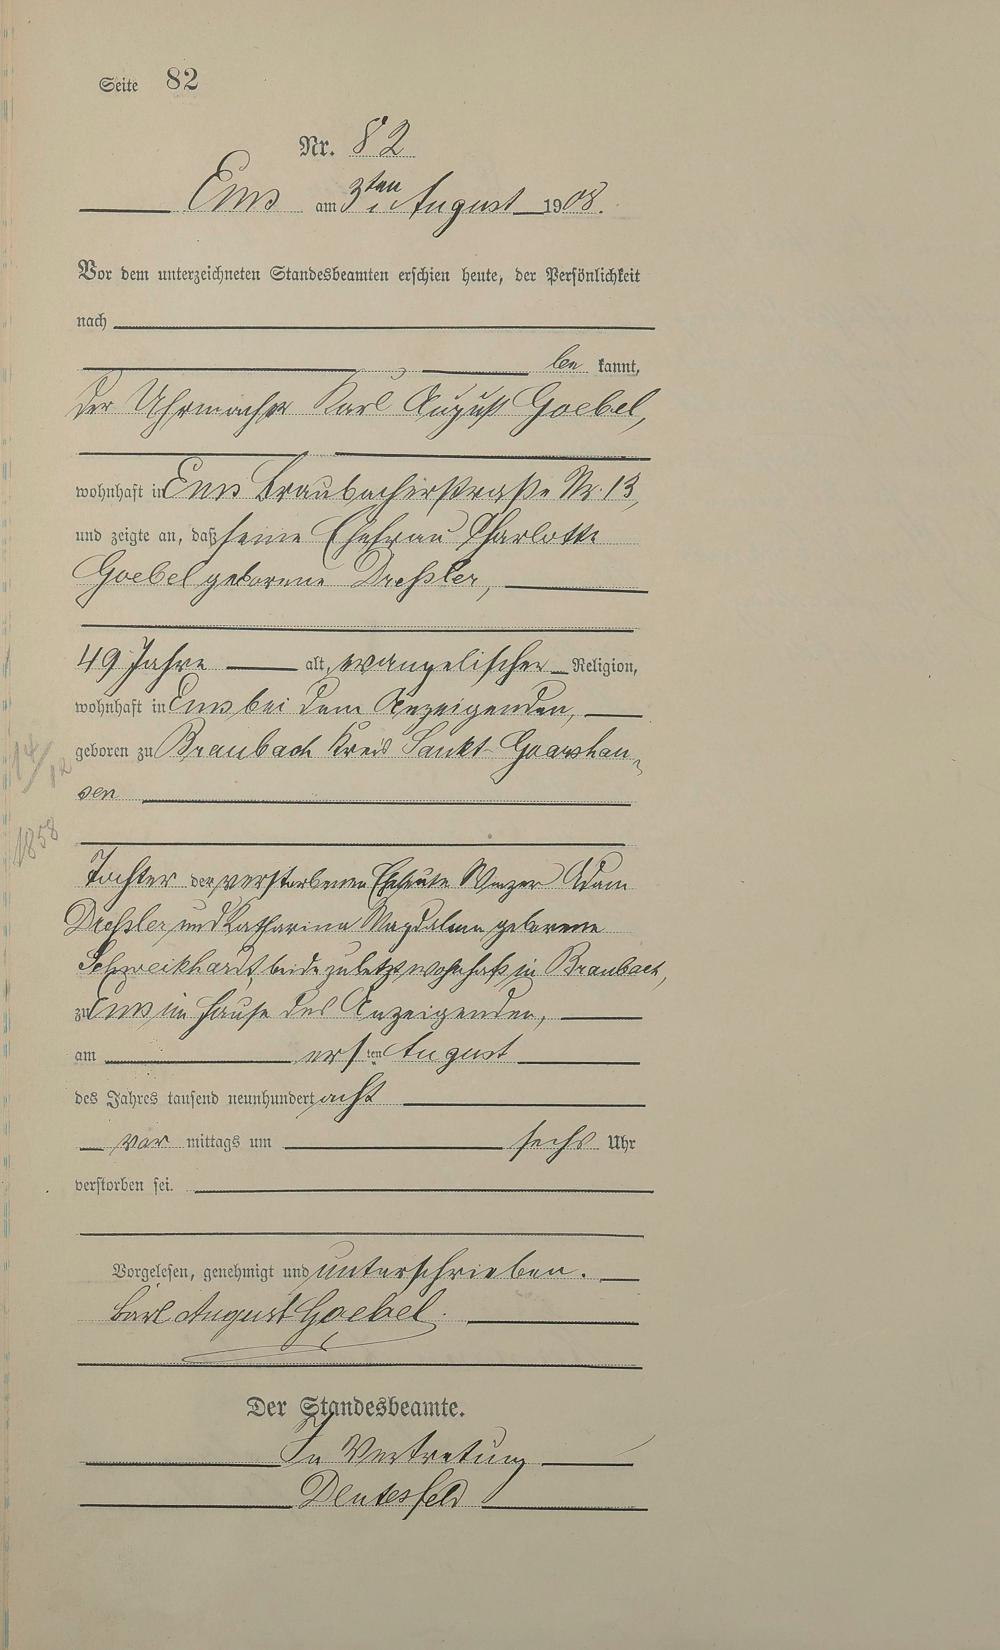 Seite 82
Nr. 82
Ems am 3ten August 1908.
Vor dem unterzeichneten Standesbeamten erschien heute, der Persönlichkeit
nach
be kannt,
der Uhrmacher Karl August Goebel,
wohnhaft in Ems Braubacherstraße Nr. 13,
und zeigte an, daß seine Ehefrau Charlotte
Goebel geborene Dreßler,
49 Jahre alt, evangelischer Religion,
wohnhaft in Ems bei dem Anzeigenden,
geboren zu Braubach Kreis Sankt Goarshau-
sen
14/12
1858
Tochter der verstorbenen Eheleute Adam
Dreßler und Katharina Magdalena geborene
Schweikhardt, beide zuletzt wohnhaft in Braubach,
zu Ems im Hause des Anzeigenden,
am ersten August
des Jahres tausend neunhundert acht
vor mittags um sechs Uhr
verstorben sei.
Vorgelesen, genehmigt und unterschrieben.
Carl August Goebel.
Der Standesbeamte.
In Vertretung
Dentesfeld